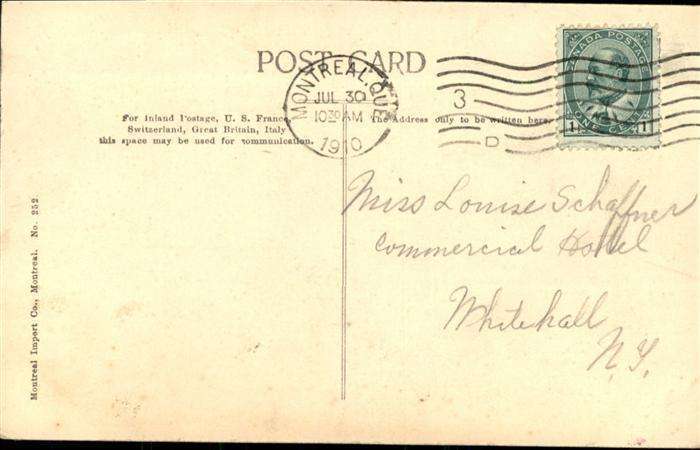 POST CARD
MONTREAL, QUE.
JUL 30
1030 AM
1910
3
D
CANADA POSTAGE
1 ONE CENT 1
For Inland Postage, U. S. France,
Switzerland, Great Britain, Italy
this space may be used for communication.
The Address only to be written here.
Miss Louise Schaffner
Commercial Hotel
Whitehall
N.Y.
Montreal Import Co., Montreal. No. 252